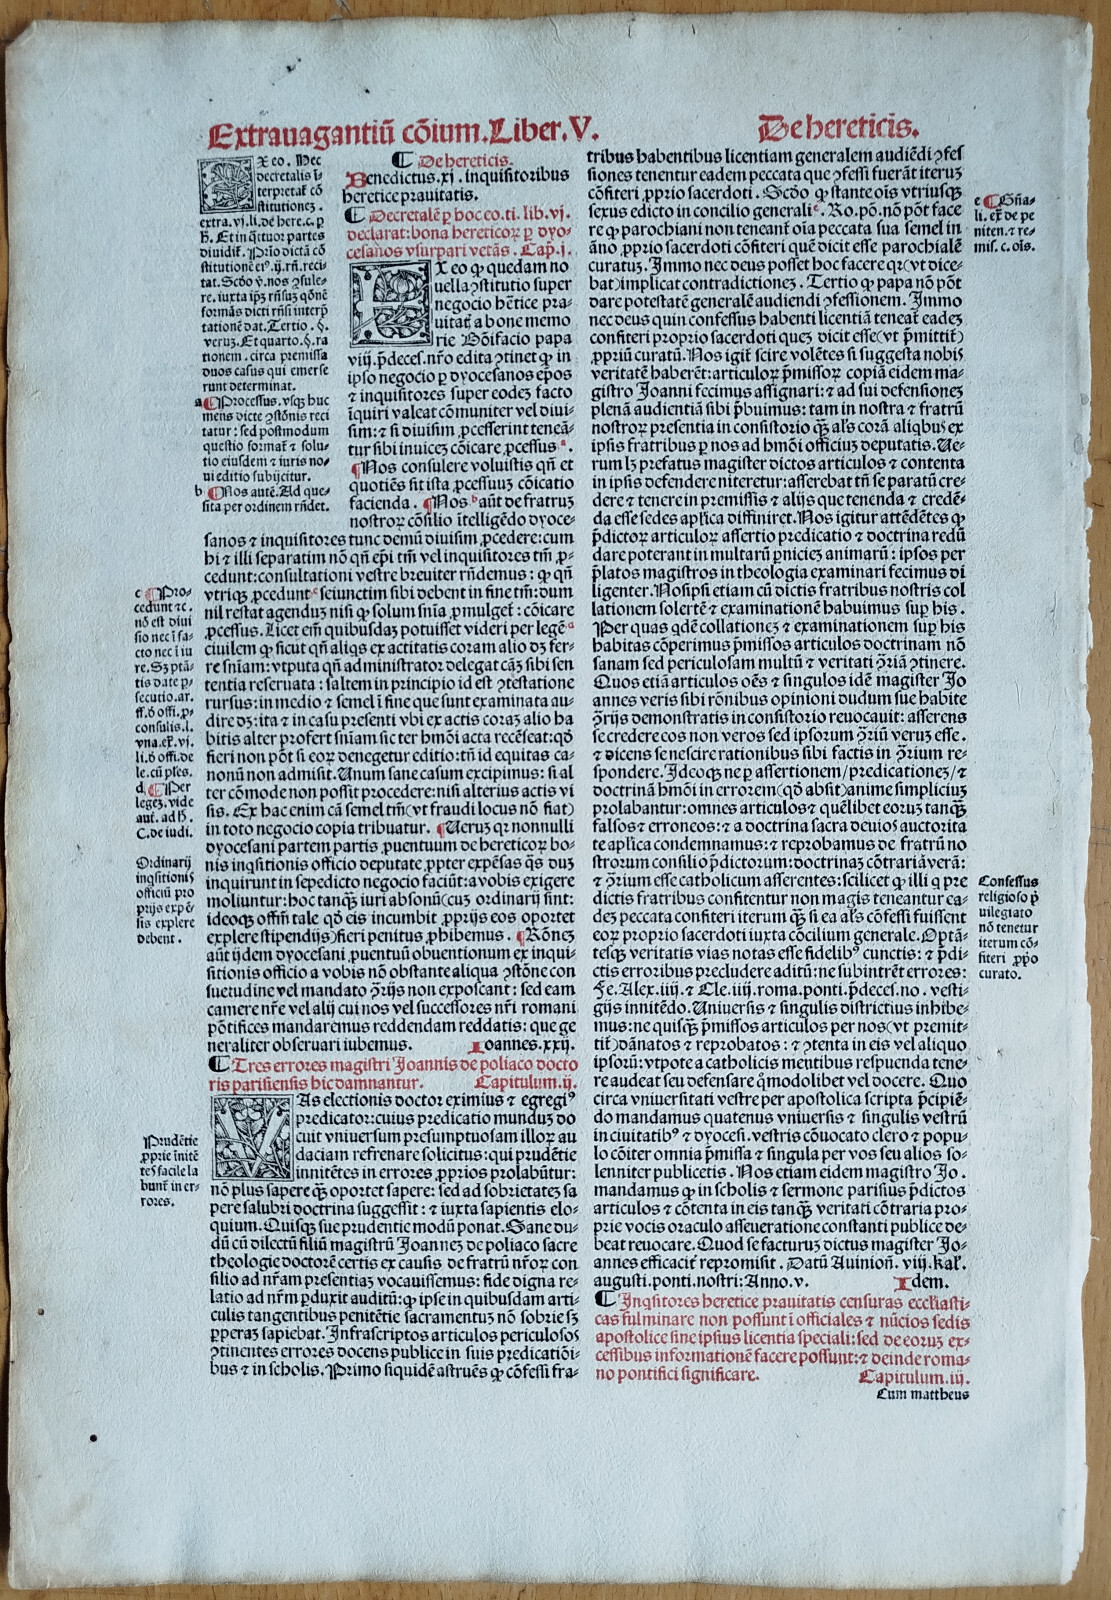 Extrauagantiū cōium. Liber. V.
De hereticis.
EX eo. Nec
decretalis ī
terpretat̄ cō
stitutionez.
extra. vi. li. de here. c. p
h̄. Et in q̄tuor partes
diuidit̄. Prīo dictā cō
stitutionē
tat. Scd̄o
re. iuxta ip̄z rn̄suz
formās dicti rn̄si interp̄
tationē dat. Tertio. §.
veruz. Et quarto. §. ra
tionem. circa premissa
duos casus qui emerse
runt determinat.
a ¶ Processus. vsqz huc
mens dicte ꝯstōnis reci
tatur: sed postmodum
questio format̄ ⁊ solu-
tio eiusdem ⁊ iuris no-
ui editio subijcitur.
b ¶ Nos autē. Ad que-
sita per ordinem rn̄det.
c ¶ Pro-
cedunt ⁊c.
nō est diui
sio nec ī fa-
cto nec ī iu
re. Sz ptā-
tis date ꝓ-
secutio. ar.
ff. ꝺ offi. ꝓ-
consulis. l.
vna. ex̄. vi.
li. ꝺ offi. de
le. cū p̄ses.
d ¶ Per
legez. vide
aut. ad h̄.
C. de iudi.
Ordinarij
inq̄sitionis
officiū pro
prijs expē-
sis explere
debent.
Prudētie
ꝓprie īnitē
tes facile la
bunt̄ in er-
rores.
¶ De hereticis.
Benedictus. xj. inquisitoribus
heretice prauitatis.
¶ Decretalē ꝑ hoc eo. ti. lib. vj.
declarat: bona hereticoꝝ ꝑ dyo-
cesanos vsurpari vetās. Cap̄. j.
EX eo ꝙ quedam no
uella ꝯstitutio super
negocio hētice pra-
uitat̄ a bone memo
rie Bōifacio papa
viij. p̄deces. nr̄o edita ꝯtinet ꝙ in
ipso negocio ꝑ dyocesanos ep̄os
⁊ inquisitores super eodez facto
īquiri valeat cōmuniter vel diui-
sim: ⁊ si diuisim ꝓcesserint teneā-
tur sibi inuicez cōicare ꝓcessusᵃ.
¶ Nos consulere voluistis qn̄ et
quotiēs sit ista ꝓcessuuz cōicatio
facienda. ¶ Nosᵇ aūt de fratruz
nostroꝝ cōsilio ītelligēdo dyoce-
sanos ⁊ inquisitores tunc demū diuisim ꝓcedere: cum
hi ⁊ illi separatim nō qn̄ ep̄i tm̄ vel inquisitores tm̄ ꝓ-
cedunt: consultationi vestre breuiter rn̄demus: ꝙ qn̄
vtriqz ꝓceduntᶜ seiunctim sibi debent in fine tm̄: dum
nil restat agenduz nisi ꝙ solum sn̄ia ꝓmulget̄: cōicare
ꝓcessus. Licet em̄ quibusdaz potuisset videri per legēᵈ
ciuilem ꝙ sicut qn̄ aliqs ex actitatis coram alio dz fer-
re sn̄iam: vtputa qn̄ administrator delegat cāz sibi sen
tentia reseruata: saltem in principio id est ꝯtestatione
rursus: in medio ⁊ semel ī fine que sunt examinata au-
dire dz: ita ⁊ in casu presenti vbi ex actis coraz alio ha
bitis alter ꝓfert sn̄iam sic ter hm̄ōi acta recēseat: qd̄
fieri non pōt si eoꝝ denegetur editio: tn̄ id equitas ca-
nonū non admisit. Unum sane casum excipimus: si al
ter cōmode non possit procedere: nisi alterius actis vi
sis. Ex hac enim cā semel tm̄ (vt fraudi locus nō fiat)
in toto negocio copia tribuatur. ¶ Ueruz qr nonnulli
dyocesani partem partis ꝓuentuum de hereticoꝝ bo-
nis inq̄sitionis officio deputate ꝓpter expēsas q̄s duz
inquirunt in sepedicto negocio faciūt: a vobis exigere
moliuntur: hoc tanqz iuri absonū (cuz ordinarij sint:
ideoqz offm̄ tale qd̄ eis incumbit ꝓprijs eos oportet
explere stipendijs) fieri penitus ꝓhibemus. ¶ Rōnez
aūt ijdem dyocesani ꝓuentuū obuentionum ex inqui-
sitionis officio a vobis nō obstante aliqua ꝯstōne con
suetudine vel mandato ꝯr̄ijs non exposcant: sed eam
camere nr̄e vel alij cui nos vel successores nr̄i romani
pōtifices mandaremus reddendam reddatis: que ge
neraliter obseruari iubemus. Ioannes. xxij.
¶ Tres errores magistri Joannis de poliaco docto
ris parisiensis hic damnantur. Capitulum. ij.
VAs electionis doctor eximius ⁊ egregiꝰ
predicator: cuius predicatio munduz do
cuit vniuersum presumptuosam illoꝝ au
daciam refrenare solicitus: qui prudētie
innitētes in errores ꝓprios prolabūtur:
nō plus sapere qz oportet sapere: sed ad sobrietatez sa
pere salubri doctrina suggessit: ⁊ iuxta sapientis elo-
quium. Quisqz sue prudentie modū ponat. Sane du-
dū cū dilectū filiū magistrū Joannez de poliaco sacre
theologie doctorē certis ex causis de fratrū nr̄oꝝ con
silio ad nr̄am presentiaz vocauissemus: fide digna re-
latio ad nr̄m ꝑduxit auditū: ꝙ ipse in quibusdam arti-
culis tangentibus penitētie sacramentuz nō sobrie sz
ꝑperaz sapiebat. Infrascriptos articulos periculosos
ꝯtinentes errores docens publice in suis predicatiōi-
bus ⁊ in scholis. Primo siquidē astruēs ꝙ cōfessi fra-
tribus habentibus licentiam generalem audiēdi ꝯfes
siones tenentur eadem peccata que ꝯfessi fuerāt iteruz
cōfiteri ꝓprio sacerdoti. Scd̄o ꝙ stante oīs vtriusqz
sexus edicto in concilio generaliᵉ. Ro. pō. nō pōt face
re ꝙ parochiani non teneant̄ oīa peccata sua semel in
āno ꝓprio sacerdoti cōfiteri quē dicit esse parochialē
curatuz. Immo nec deus posset hoc facere qr (vt dice-
bat) implicat contradictionez. Tertio ꝙ papa nō pōt
dare potestatē generalē audiendi ꝯfessionem. Immo
nec deus quin confessus habenti licentiā teneat̄ eadez
confiteri proprio sacerdoti quez dicit esse (vt p̄mittit̄)
ꝓpriū curatū. Nos igit̄ scire volētes si suggesta nobis
veritatē haberēt: articuloꝝ p̄missoꝝ copiā eidem ma-
gistro Joanni fecimus assignari: ⁊ ad sui defensionez
plenā audientiā sibi p̄buimus: tam in nostra ⁊ fratrū
nostroꝝ presentia in consistorio qz al̄s corā aliqbus ex
ipsis fratribus ꝑ nos ad hm̄ōi officiuz deputatis. Ue-
rum lz prefatus magister dictos articulos ⁊ contenta
in ipsis defendere niteretur: asserebat tn̄ se paratū cre-
dere ⁊ tenere in premissis ⁊ alijs que tenenda ⁊ credē-
da esse sedes aplīca diffiniret. Nos igitur attēdētes ꝙ
p̄dictoꝝ articuloꝝ assertio predicatio ⁊ doctrina redū
dare poterant in multarū ꝑniciez animarū: ipsos per
p̄latos magistros in theologia examinari fecimus di
ligenter. Nosipsi etiam cū dictis fratribus nostris col
lationem solertē ⁊ examinationē habuimus suꝑ his.
Per quas qdē collationez ⁊ examinationem suꝑ his
habitas cōperimus p̄missos articulos doctrinam nō
sanam sed periculosam multū ⁊ veritati ꝯr̄iā ꝯtinere.
Quos etiā articulos oēs ⁊ singulos idē magister Jo
annes veris sibi rōnibus opinioni dudum sue habite
ꝯr̄ijs demonstratis in consistorio reuocauit: asserens
se credere eos non veros sed ipsorum ꝯr̄iū veruz esse.
⁊ dicens se nescire rationibus sibi factis in ꝯr̄ium re-
spondere. Ideoqz ne ꝑ assertionem / predicationez / ⁊
doctrinā hm̄ōi in errorem (qd̄ absit) anime simplicius
prolabantur: omnes articulos ⁊ quēlibet eoruz tanqz
falsos ⁊ erroneos: ⁊ a doctrina sacra deuios auctorita
te aplīca condemnamus: ⁊ reprobamus de fratrū no
strorum consilio p̄dictorum: doctrinaz cōtrariā verā:
⁊ ꝯr̄ium esse catholicum asserentes: scilicet ꝙ illi q pre
dictis fratribus confitentur non magis teneantur ea-
dez peccata confiteri iterum qz si ea al̄s cōfessi fuissent
eoꝝ proprio sacerdoti iuxta cōcilium generale. Optā-
tesqz veritatis vias notas esse fidelibꝰ cunctis: ⁊ p̄di-
ctis erroribus precludere aditū: ne subintrēt errores:
fe. Alex. iiij. ⁊ Cle. iiij. roma. ponti. p̄deces. no. vesti-
gijs innitēdo. Uniuersis ⁊ singulis districtius inhibe-
mus: ne quisqz p̄missos articulos per nos (vt premit-
tit̄) dānatos ⁊ reprobatos: ⁊ ꝯtenta in eis vel aliquo
ipsorū: vtpote a catholicis mentibus respuenda tene-
re audeat seu defensare q̄modolibet vel docere. Quo
circa vniuersitati vestre per apostolica scripta p̄cipiē-
do mandamus quatenus vniuersis ⁊ singulis vestrū
in ciuitatibꝰ ⁊ dyocesi. vestris cōuocato clero ⁊ popu-
lo cōiter omnia p̄missa ⁊ singula per vos seu alios so-
lenniter publicetis. Nos etiam eidem magistro Jo.
mandamus ꝙ in scholis ⁊ sermone parisius p̄dictos
articulos ⁊ cōtenta in eis tanqz veritati cōtraria pro-
prie vocis oraculo asseueratione constanti publice de-
beat reuocare. Quod se facturuz dictus magister Jo-
annes efficacit̄ repromisit. Datū Auinion̄. viij. kal̄.
augusti. ponti. nostri: Anno. v. Idem.
¶ Inq̄sitores heretice prauitatis censuras eccl̄iasti-
cas fulminare non possunt ī officiales ⁊ nūcios sedis
apostolice sine ipsius licentia speciali: sed de eoruz ex-
cessibus informationē facere possunt: ⁊ deinde roma-
no pontifici significare. Capitulum. iij.
Cum mattheus
e ¶ Gn̄a-
li. ex̄. de pe
niten. ⁊ re-
mis. c. oīs.
Confessus
religioso p̄
uilegiato
nō tenetur
iterum cō-
fiteri ꝓpo
curato.